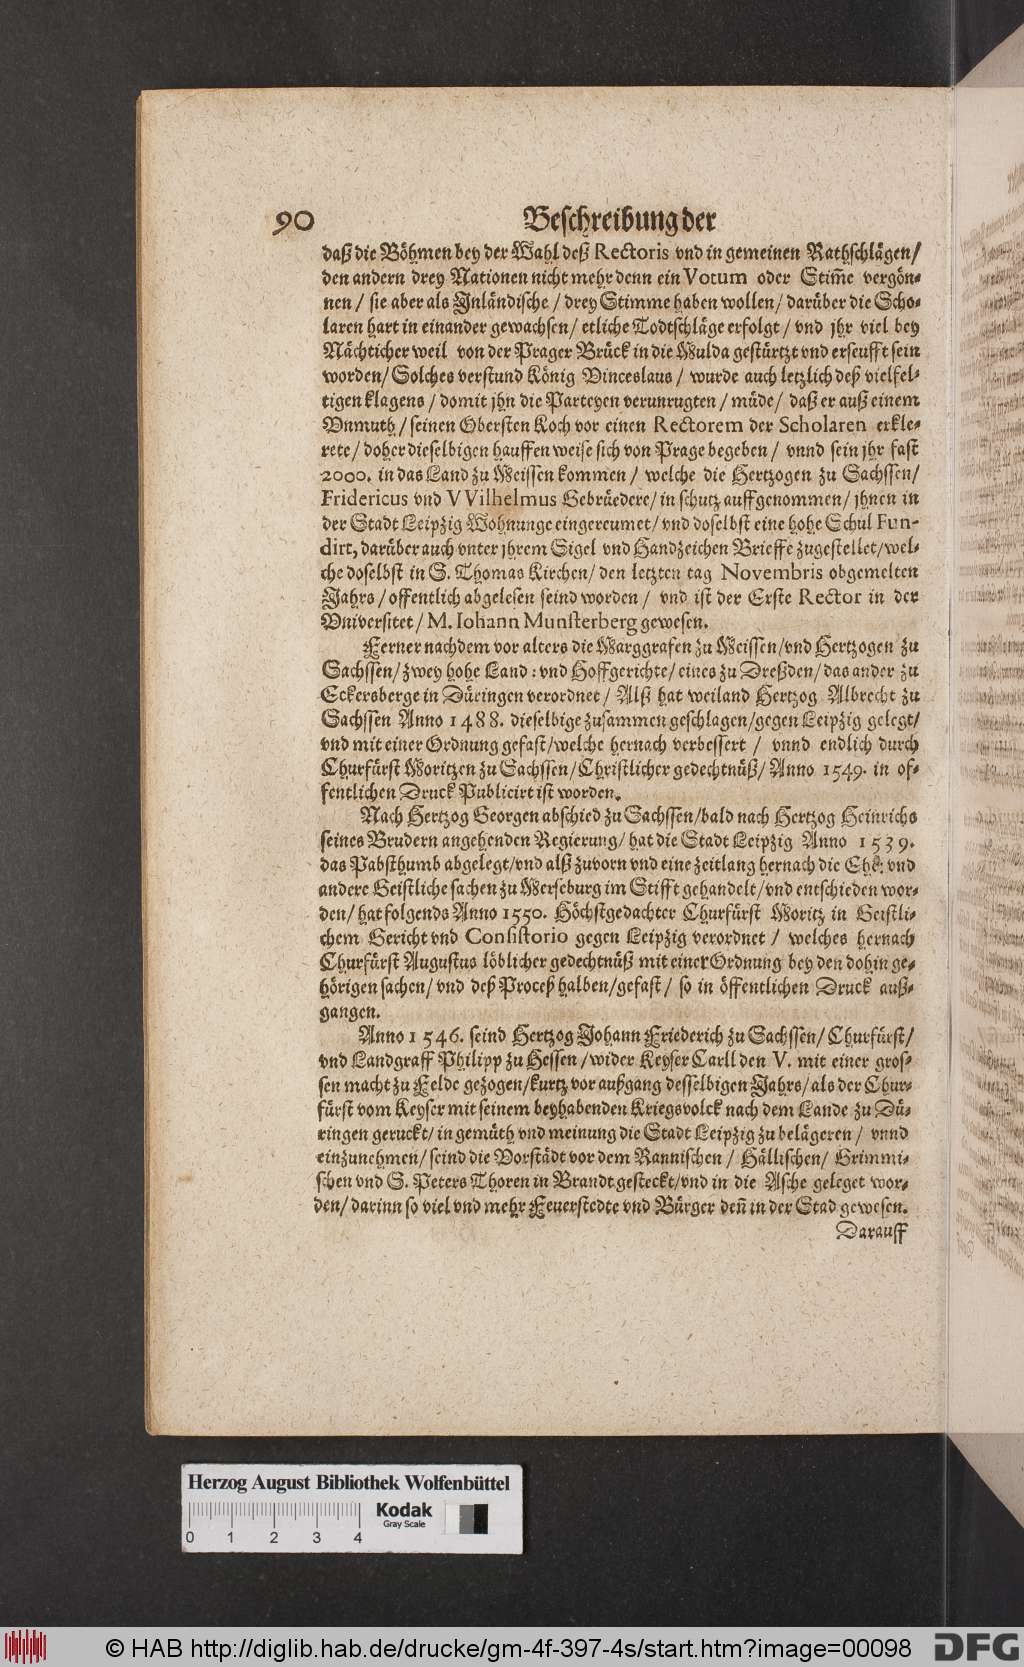 90 Beschreibung der
daß die Böhmen bey der Wahl deß Rectoris vnd in gemeinen Rathschlägen/
den andern drey Nationen nicht mehr denn ein Votum oder Stim̃e vergön-
nen / sie aber als Inländische / drey Stimme haben wollen / darüber die Scho-
laren hart in einander gewachsen / etliche Todtschläge erfolgt / vnd jhr viel bey
Nächticher weil von der Prager Brück in die Mulda gestürtzt vnd erseufft sein
worden/ Solches verstund König Vinceslaus / wurde auch letzlich deß vielfel-
tigen klagens / domit jhn die Parteyen verunrugten / müde / daß er auß einem
Vnmuth / seinen Obersten Koch vor einen Rectorem der Scholaren erkle-
rete / doher dieselbigen hauffen weise sich von Prage begeben / vnnd sein jhr fast
2000. in das Land zu Meissen kommen / welche die Hertzogen zu Sachssen/
Fridericus vnd VVilhelmus Gebrüedere/ in schutz auffgenommen / jhnen in
der Stadt Leipzig Wohnunge eingereumet/ vnd doselbst eine hohe Schul Fun-
dirt, darüber auch vnter jhrem Sigel vnd Handzeichen Brieffe zugestellet/wel-
che doselbst in S. Thomas Kirchen/ den letzten tag Novembris obgemelten
Jahrs / offentlich abgelesen seind worden / vnd ist der Erste Rector in der
Vniversitet / M. Iohann Munsterberg gewesen.
Ferner nachdem vor alters die Marggrafen zu Meissen/vnd Hertzogen zu
Sachssen/ zwey hohe Land : vnd Hoffgerichte/ eines zu Dreßden/ das ander zu
Eckersberge in Düringen verordnet / Alß hat weiland Hertzog Albrecht zu
Sachssen Anno 1488. dieselbige zusammen geschlagen/gegen Leipzig gelegt/
vnd mit einer Ordnung gefast/welche hernach verbessert / vnnd endlich durch
Churfürst Moritzen zu Sachssen/ Christlicher gedechtnüß/ Anno 1549. in of-
fentlichen Druck Publicirt ist worden.
Nach Hertzog Georgen abschied zu Sachssen/bald nach Hertzog Heinrichs
seines Brudern angehenden Regierung/ hat die Stadt Leipzig Anno 1539.
das Pabsthumb abgelegt/vnd alß zuvorn vnd eine zeitlang hernach die Ehe: vnd
andere Geistliche sachen zu Merseburg im Stifft gehandelt/ vnd entschieden wor-
den/ hat folgends Anno 1550. Höchstgedachter Churfürst Moritz in Geistli-
chem Gericht vnd Consistorio gegen Leipzig verordnet / welches hernach
Churfürst Augustus löblicher gedechtnüß mit einer Ordnung bey den dohin ge-
hörigen sachen/ vnd deß Proceß halben/gefast / so in öffentlichen Druck auß-
gangen.
Anno 1546. seind Hertzog Johann Friederich zu Sachssen/ Churfürst/
vnd Landgraff Philipp zu Hessen / wider Keyser Carll den V. mit einer gros-
sen macht zu Felde gezogen/kurtz vor außgang desselbigen Jahrs/ als der Chur-
fürst vom Keyser mit seinem beyhabenden Kriegsvolck nach dem Lande zu Dü-
ringen geruckt/ in gemüth vnd meinung die Stadt Leipzig zu belägeren / vnnd
einzunehmen/ seind die Vorstädt vor dem Rannischen / Hällischen/ Grimmi-
schen vnd S. Peters Thoren in Brandt gesteckt/vnd in die Asche geleget wor-
den/ darinn so viel vnd mehr Feuerstedte vnd Bürger den̄ in der Stad gewesen.
Darauff
Herzog August Bibliothek Wolfenbüttel
Kodak
Gray Scale
0 1 2 3 4
© HAB http://diglib.hab.de/drucke/gm-4f-397-4s/start.htm?image=00098
DFG